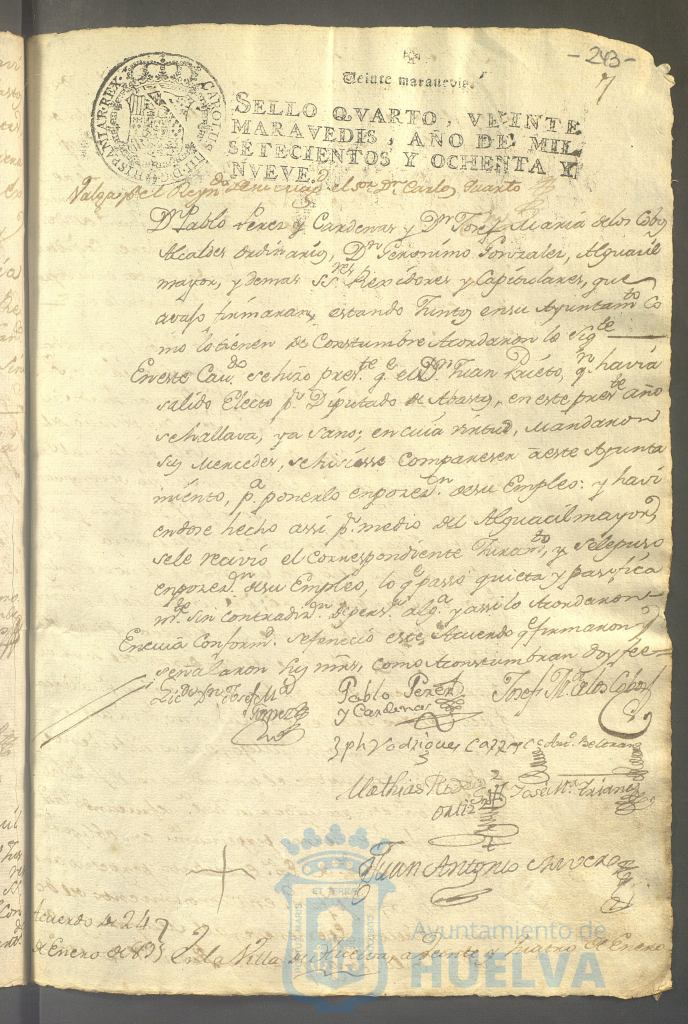 - 243 -
7
Veinte maravedis.
CAROLUS III D.G. HISPANIAR. REX.
SELLO QVARTO, VEINTE
MARAVEDIS, AÑO DE MIL
SETECIENTOS Y OCHENTA Y
NVEVE.
Valga pa. el Reyndo. de el sor. Dn. Carlos Quarto
Dn. Pablo Perez y Cardenas y Dn. Josef Maria de los Cobos
Alcaldes ordinarios, Dn. Geronimo Gonzales, Alguacil
mayor, y demas SSres. Rexidores y Capitulares, que
avajo firmaran, estando Juntos en su Ayuntamto. Co
mo lo tienen de Constumbre Acordaron lo Sigte.
En este Cavdo. se hizo preste. qe. el Dn. Juan Prieto, qn. havia
salido Electo pr. Diputado de Abasto, en este preste. año
se hallava, ya sano; en cuia virtud, Mandaron
sus Mercedes, se hisiesse Compareser a este Ayunta
miento, pa. ponerlo en posen. de su Empleo: y havi
endose hecho assi pr. medio del Alguacil mayor
se le recivio el correspondiente Juramto. y se le puso
en posen. de su Empleo, lo qe. passo quieta y pasifica
mte. sin contradn. de persa. alga. y assi lo Acordaron
En cuia Conformd. se fenecio este Acuerdo qe. firmaron y
señalaron sus mrs. como Aconstumbran doy fee=
Licdo. Dn. Josef Ma.
Lopez
Pablo Perez
y Cardenas
Josef Ma. de los Cobos
Jph Rodrigues
Beltran
Mathias
Ortiz
José Ma. Trianes
Juan Antonio
Acuerdo de 24
de Enero de 89
En la Villa de Huelva, a Veinte y quatro de Enero
Ayuntamiento de
HUELVA